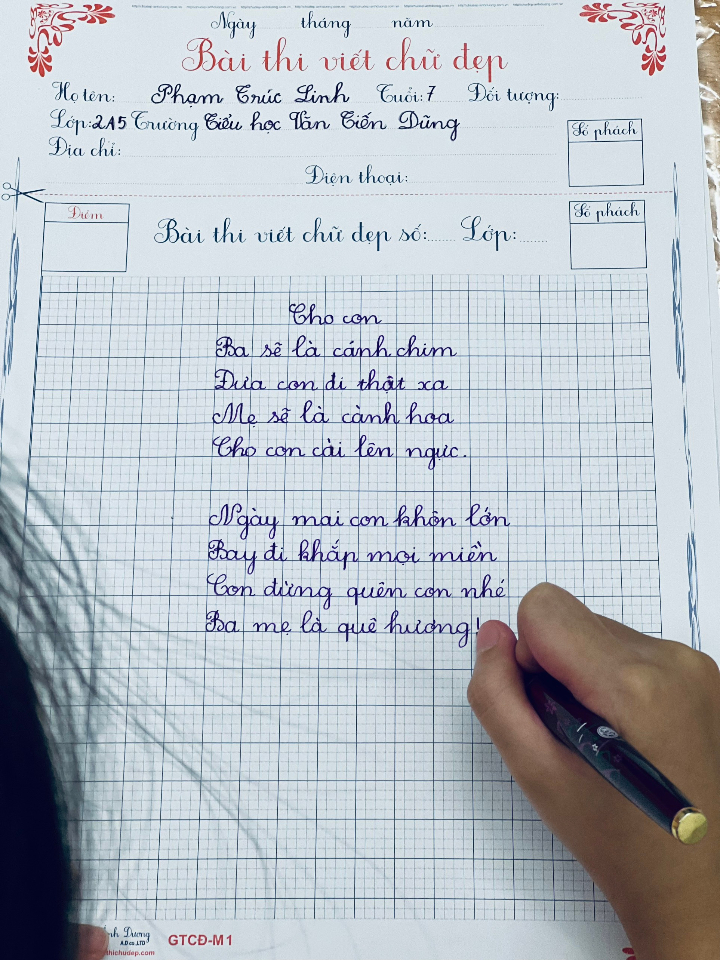 Ngày tháng năm
Bài thi viết chữ đẹp
Họ tên: Phạm Trúc Linh Tuổi: 7 Đối tượng:
Lớp: 2A5 Trường Tiểu học Văn Tiến Dũng
Địa chỉ:
Số phách
Điện thoại:
Điểm
Bài thi viết chữ đẹp số: Lớp:
Số phách
Cho con
Ba sẽ là cánh chim
Đưa con đi thật xa
Mẹ sẽ là cành hoa
Cho con cài lên ngực.
Ngày mai con khôn lớn
Bay đi khắp mọi miền
Con đừng quên con nhé
Ba mẹ là quê hương!
Dương
GTCĐ-M1